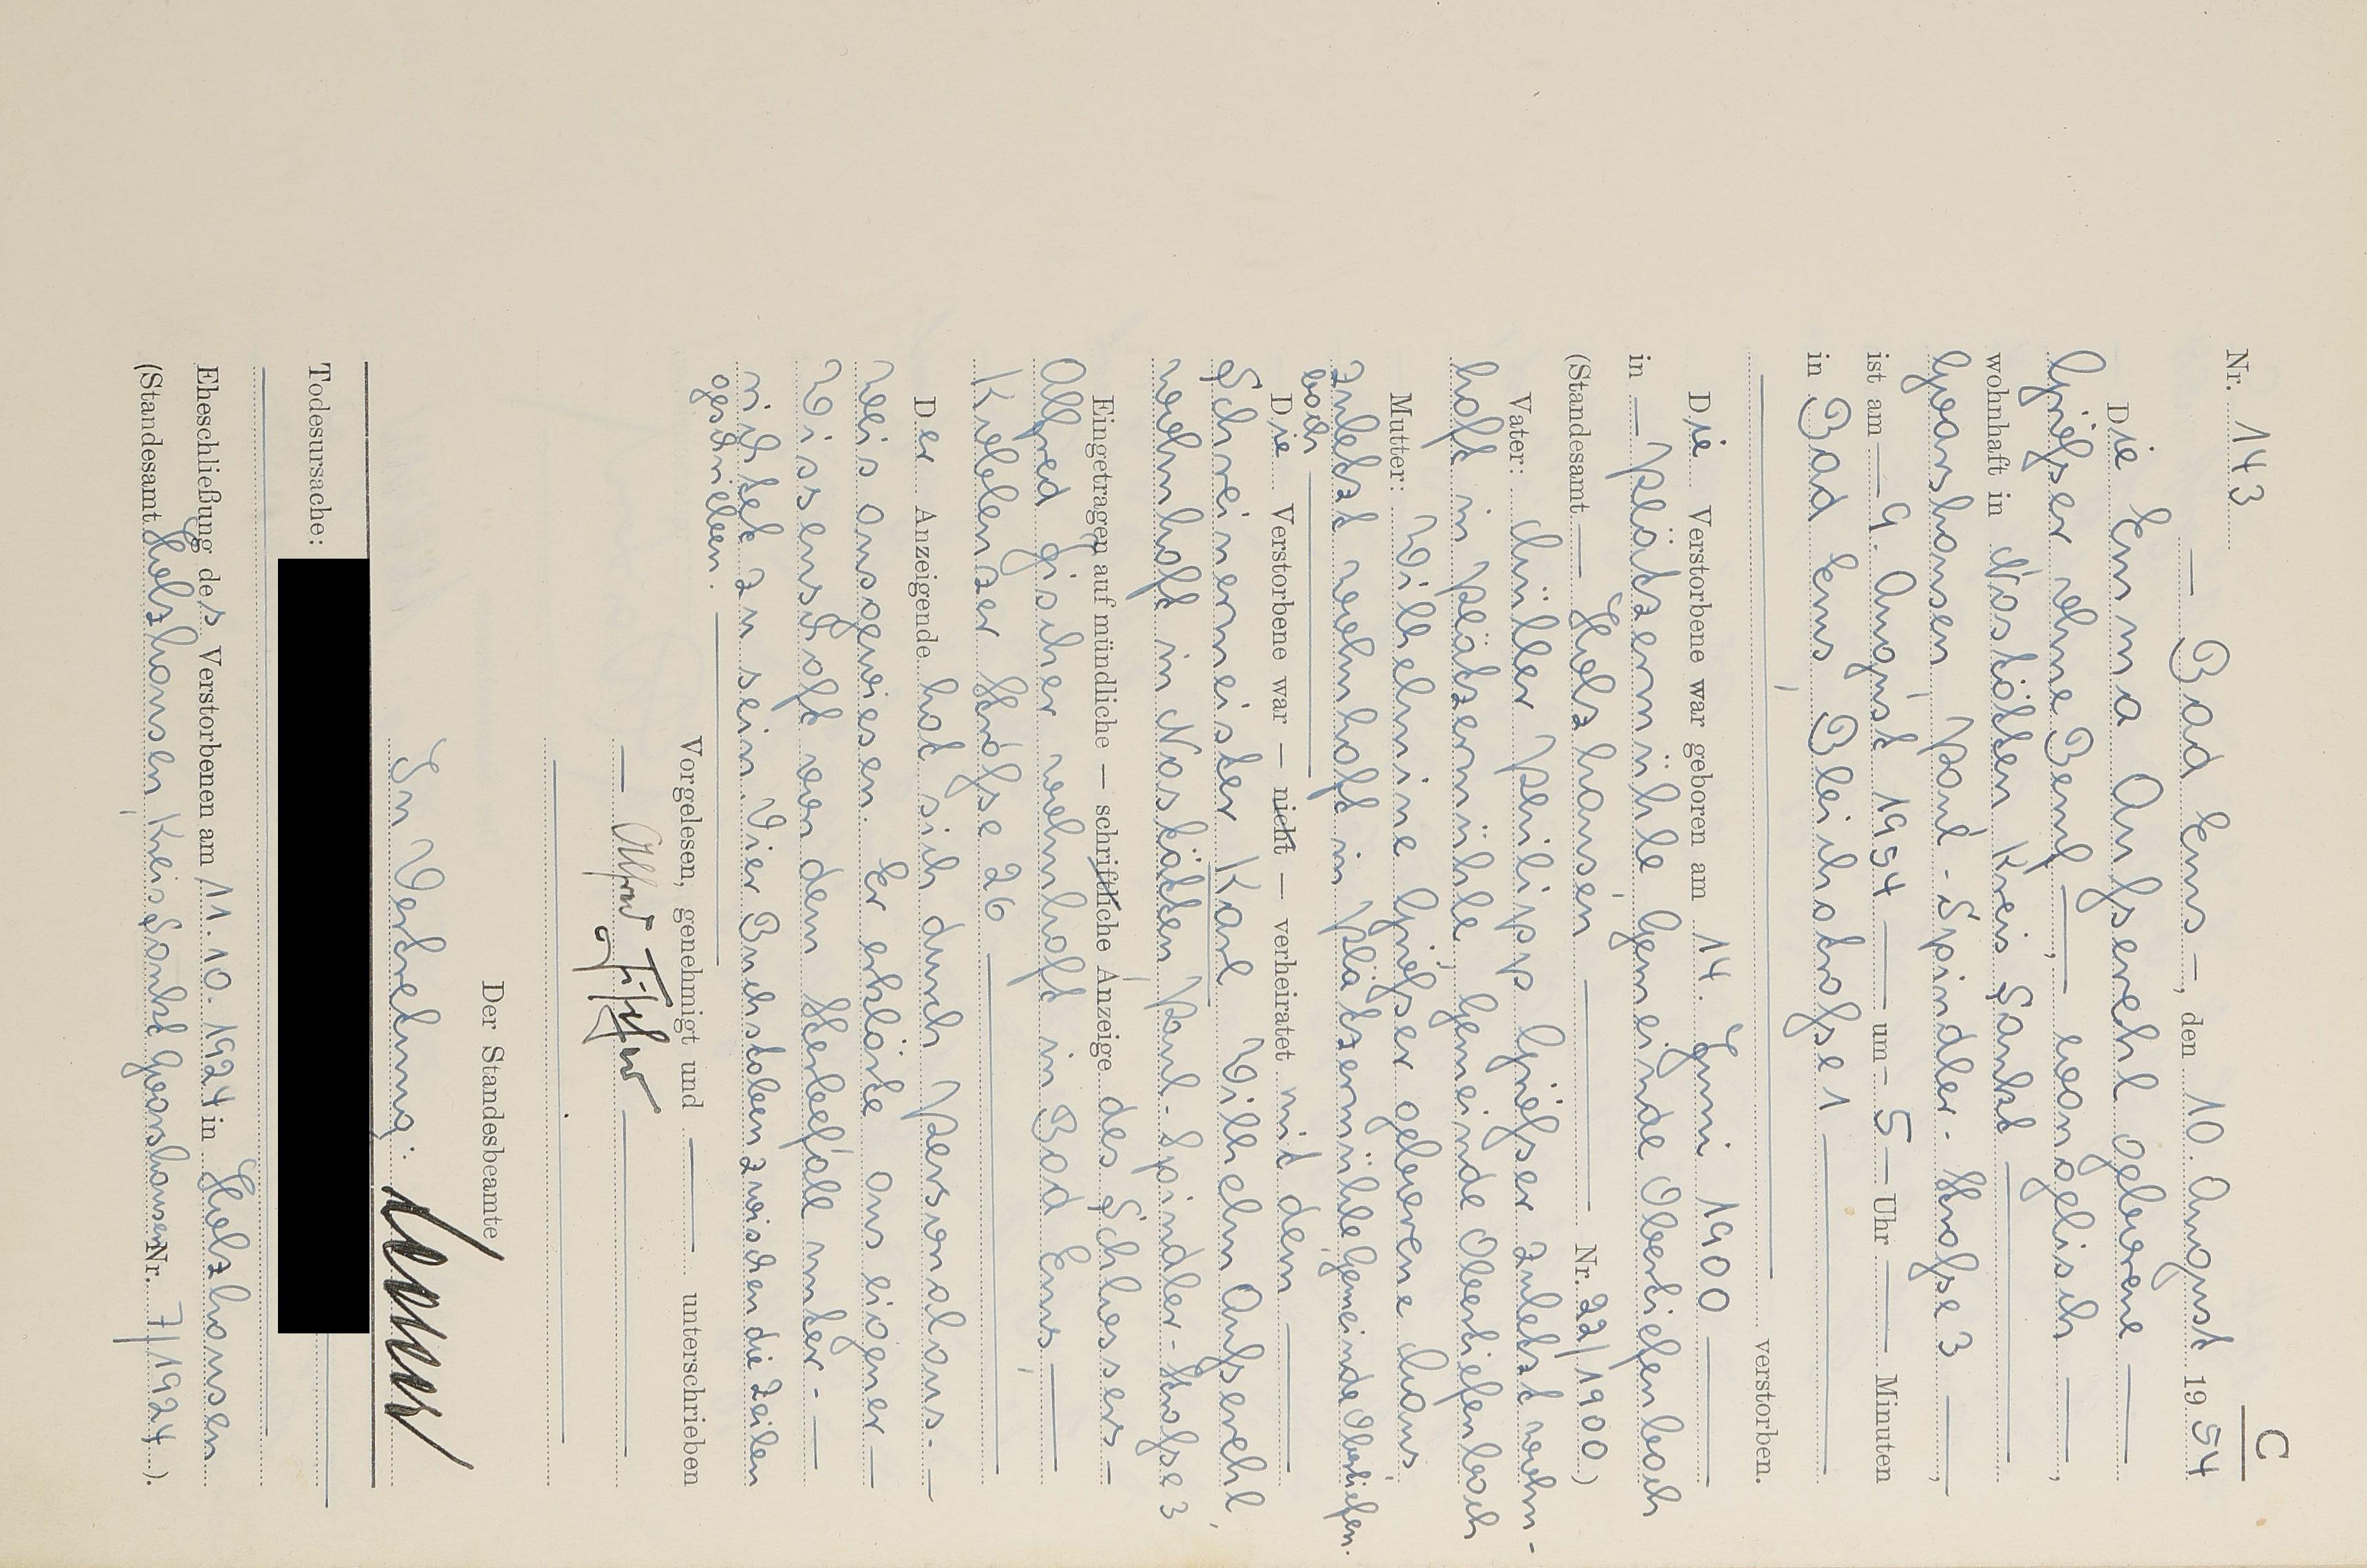 C
Nr. 143
— Bad Ems —, den 10. August 1954
Die Emma Aufserehl geborene —
Griefser ohne Beruf —, — evangelisch —,
wohnhaft in Nastätten Kreis Sankt —
Goarshausen, Paul-Spindler-Strafse 3 —,
ist am — 9. August 1954 — um — 5 — Uhr — Minuten
in Bad Ems, Bleichstrafse 1 —
— verstorben.
Die Verstorbene war geboren am 14. Juni 1900 —
in — Plätzermühle, Gemeinde Obertiefenbach
(Standesamt — Holzhausen — Nr. 22/1900)
Vater: Müller Philipp Griefser zuletzt wohn-
haft in Plätzermühle, Gemeinde Obertiefenbach
Mutter: Wilhelmine Griefser geborene Maus,
zuletzt wohnhaft in Plätzermühle, Gemeinde Obertiefen-
bach —
Die Verstorbene war — nicht — verheiratet mit dem —
Schreinermeister Karl Wilhelm Aufserehl,
wohnhaft in Nastätten, Paul-Spindler-Strafse 3
Eingetragen auf mündliche — schriftliche Anzeige des Schlossers —
Alfred Fischer wohnhaft in Bad Ems, —
Koblenzer Strafse 26 —
Der Anzeigende hat sich durch Personalaus- —
weis ausgewiesen. Er erklärte aus eigener —
Wissenschaft von dem Sterbefall unter- —
richtet zu sein. Vier Buchstaben zwischen die Zeilen
geschrieben. —
Vorgelesen, genehmigt und — unterschrieben
— Alfred Fischer —
Der Standesbeamte
In Vertretung:
Todesursache:
Eheschließung des Verstorbenen am 11.10.1924 in Holzhausen
(Standesamt Holzhausen, Kreis Sankt Goarshausen Nr. 7/1924).